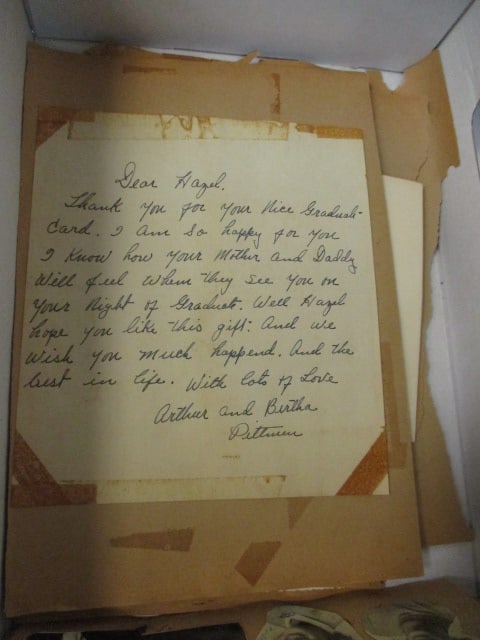 Dear Hazel.
Thank you for your Nice Graduat-
Card. I am so happy for you
I Know how your Mother and Daddy
Will feel when they see you on
your Night of Graduate. Well Hazel
hope you like this gift. And we
Wish you much happend. And the
best in life. With lots of Love
Arthur and Birtha
Pittman